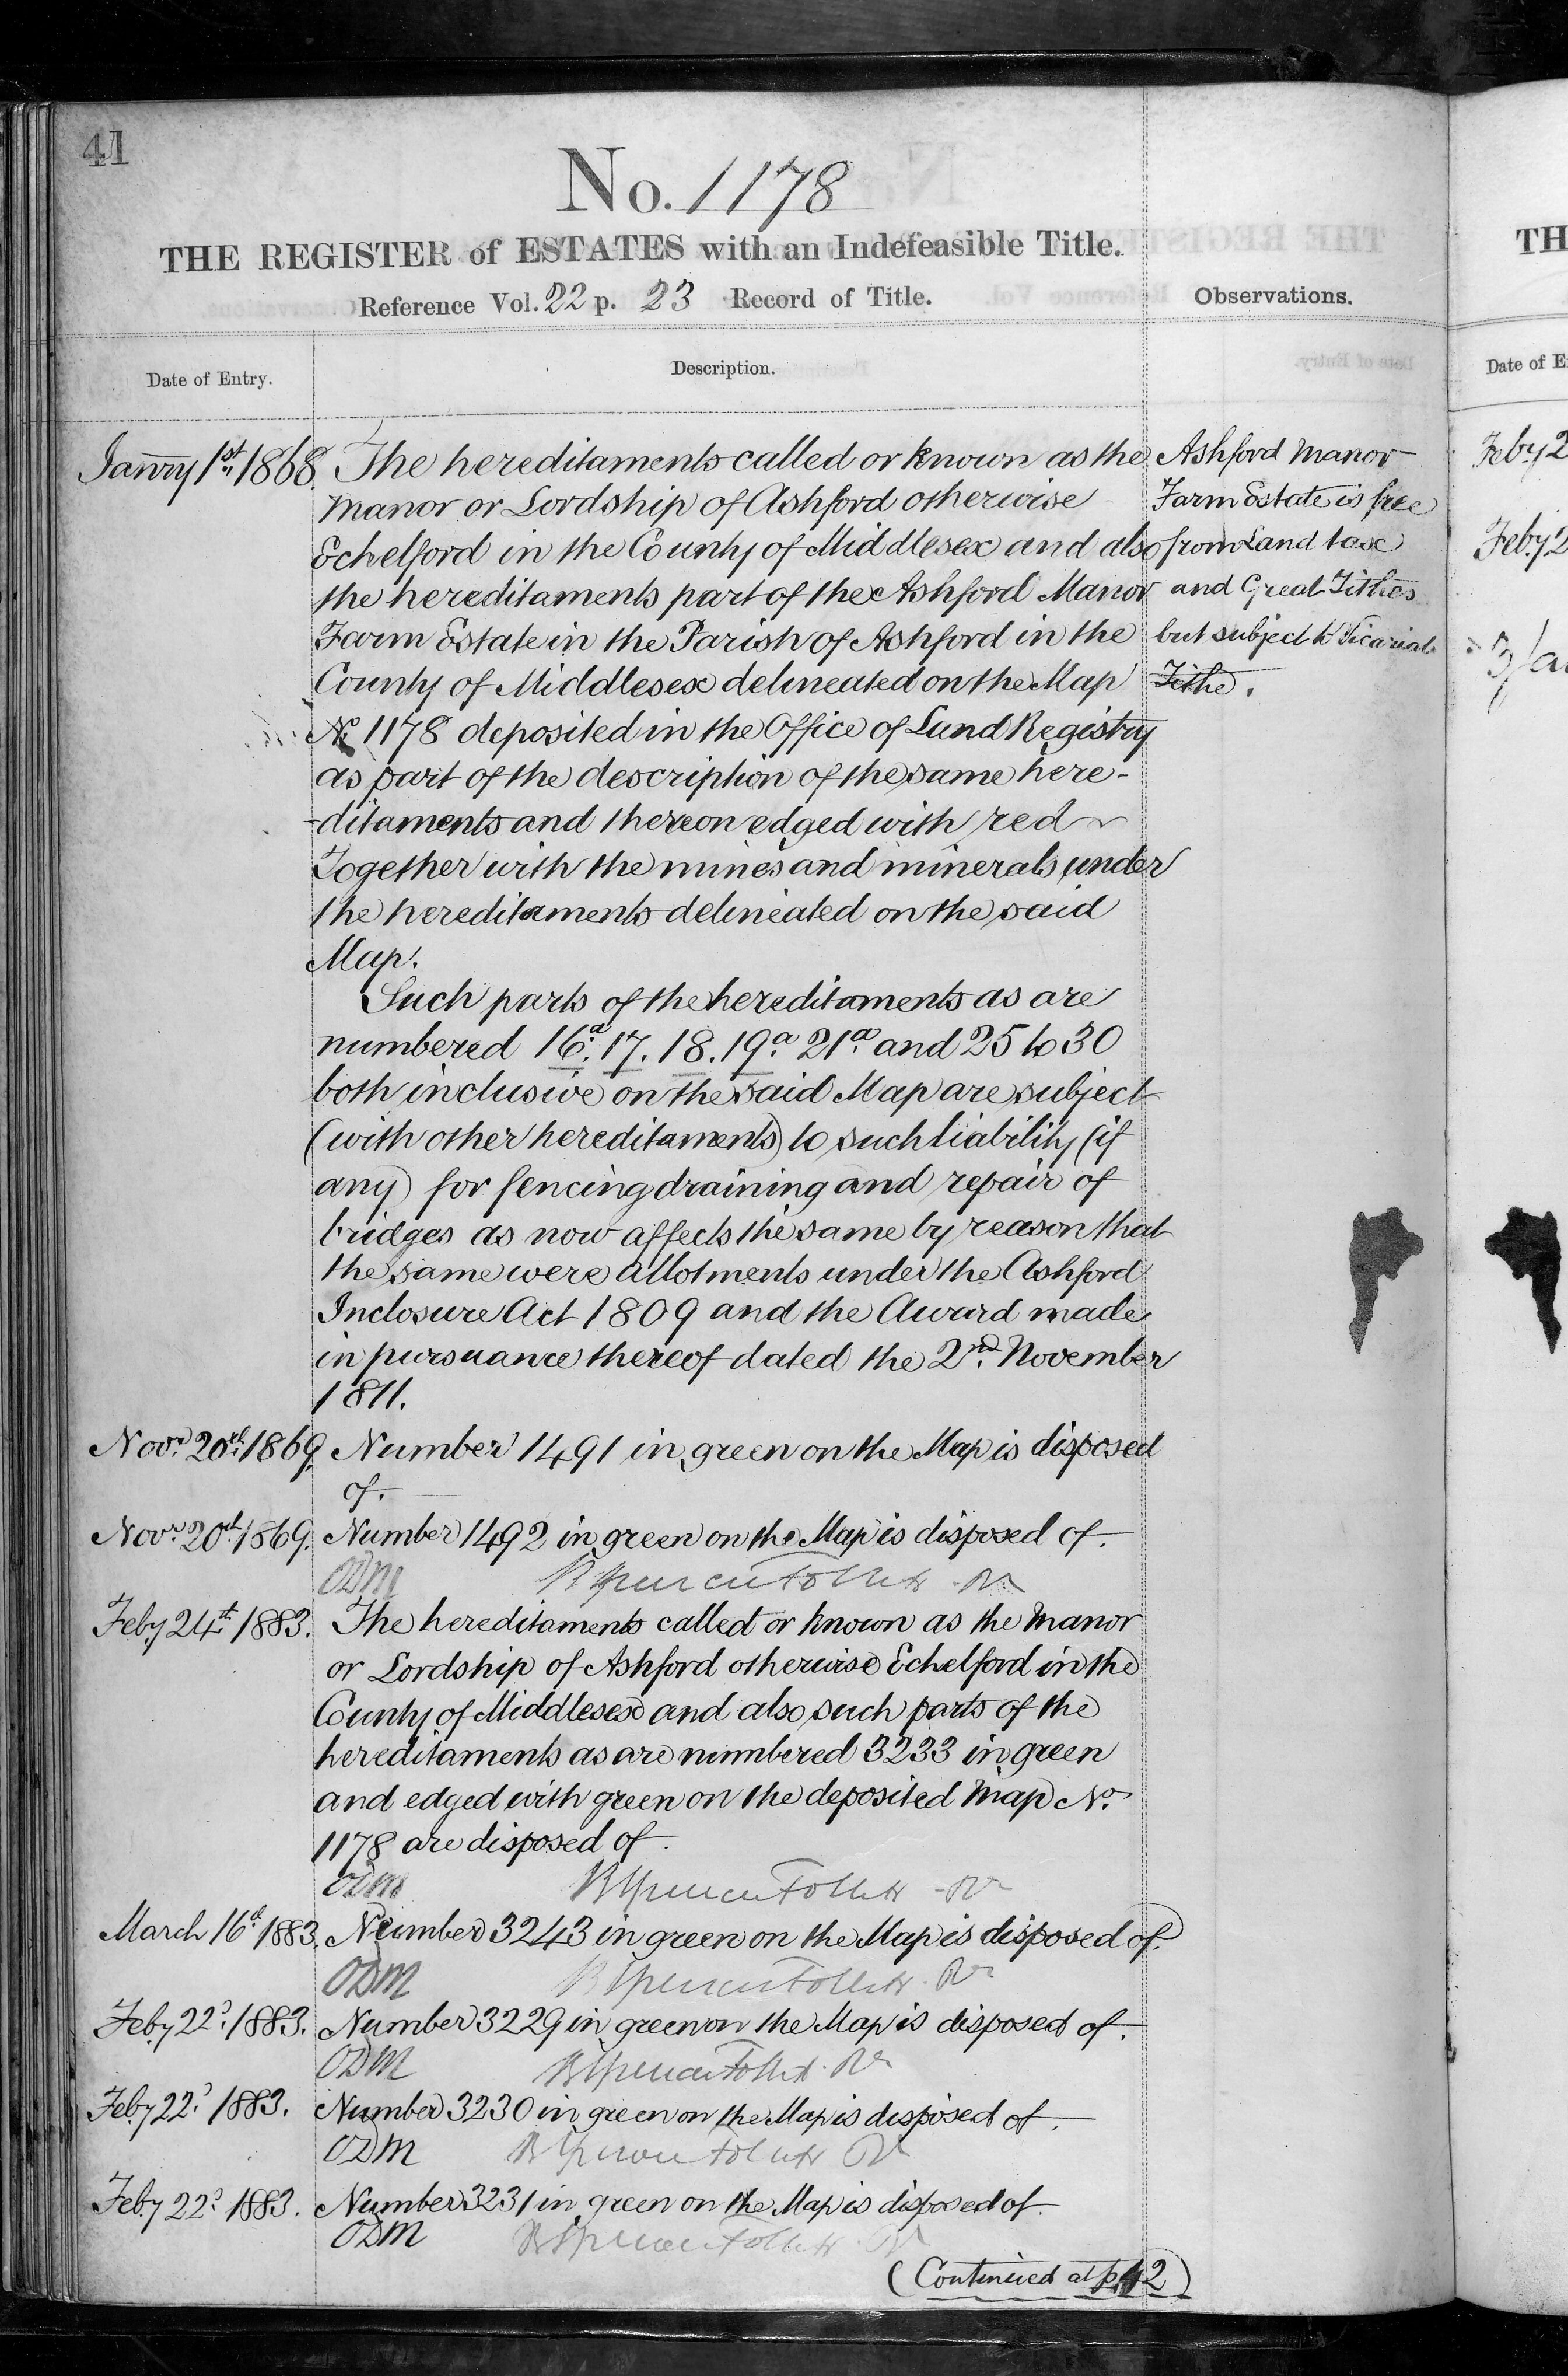 41
No. 1178
THE REGISTER of ESTATES with an Indefeasible Title.
Reference Vol. 22 p. 23 Record of Title.
Observations.
Date of Entry.
Description.
Janry 1st 1868
The hereditaments called or known as the
Manor or Lordship of Ashford otherwise
Echelford in the County of Middlesex and also
the hereditaments part of the Ashford Manor
Farm Estate in the Parish of Ashford in the
County of Middlesex delineated on the Map
No. 1178 deposited in the Office of Land Registry
as part of the description of the same here-
-ditaments and thereon edged with red
Together with the mines and minerals under
the hereditaments delineated on the said
Map.
Ashford Manor
Farm Estate is free
from Land tax
and Great Tithes
but subject to Vicarial
Tithe.
Such parts of the hereditaments as are
numbered 16a. 17. 18. 19a. 21a. and 25 to 30
both inclusive on the said Map are subject
(with other hereditaments) to such liability (if
any) for fencing draining and repair of
bridges as now affects the same by reason that
the same were allotments under the Ashford
Inclosure Act 1809 and the Award made
in pursuance thereof dated the 2nd. November
1811.
Novr. 20th. 1869. Number 1491 in green on the Map is disposed
of.
Novr. 20th 1869. Number 1492 in green on the Map is disposed of.
ODM
Feby 24th. 1883. The hereditaments called or known as the Manor
or Lordship of Ashford otherwise Echelford in the
County of Middlesex and also such parts of the
hereditaments as are numbered 3233 in green
and edged with green on the deposited Map No.
1178 are disposed of.
ODM
March 16th 1883. Number 3243 in green on the Map is disposed of.
ODM
Feby 22d. 1883. Number 3229 in green on the Map is disposed of.
ODM
Feby 22d. 1883. Number 3230 in green on the Map is disposed of.
ODM
Feby 22d. 1883. Number 3231 in green on the Map is disposed of.
ODM
(Continued at p. 42)
TH
Date of E
Feby 2
Feby 2